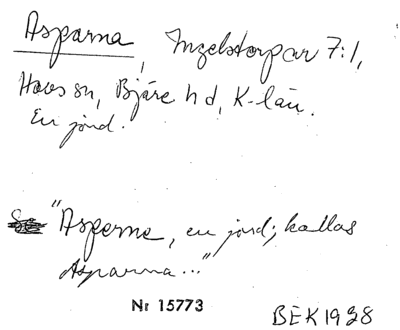 Asparna, Ingelstorpar 7:1,
Hovs sn, Bjäre hd, K-län.
En jord.
"Asperne, en jord; kallas
Asparna..."
Nr 15773
BEK 1928